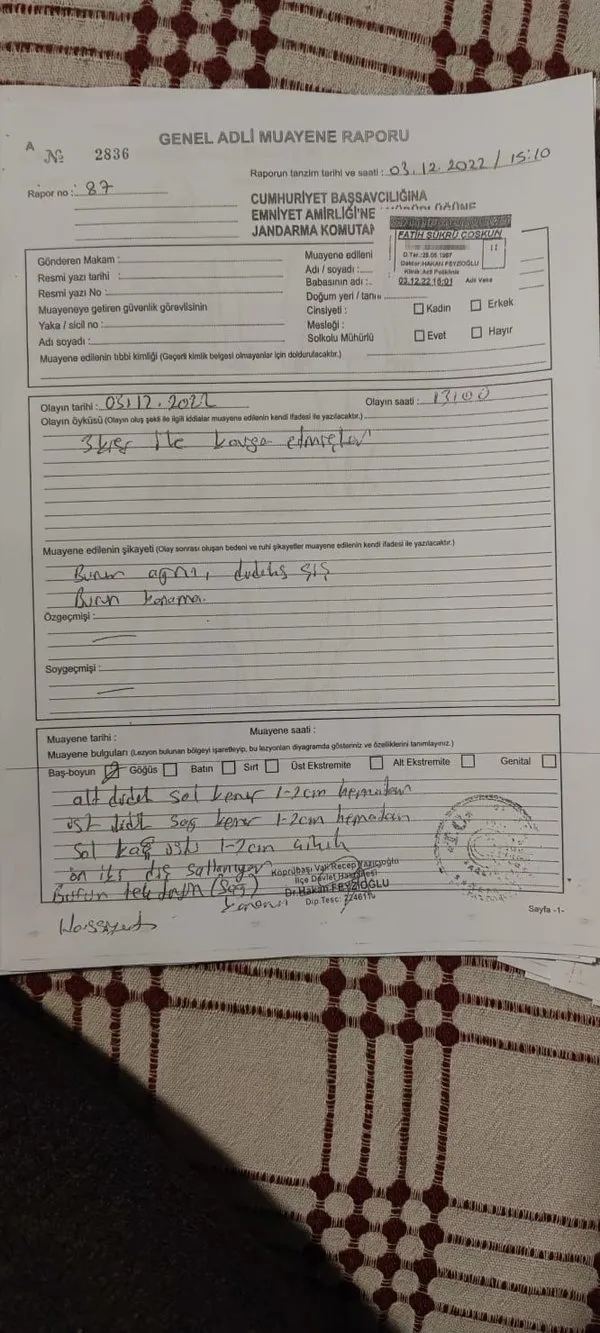 A
№ 2836
GENEL ADLİ MUAYENE RAPORU
Raporun tanzim tarihi ve saati : 03.12.2022 / 15:10
Rapor no : 87
CUMHURİYET BAŞSAVCILIĞINA
EMNİYET AMİRLİĞİ'NE
JANDARMA KOMUTAN
FATİH ŞÜKRÜ COŞKUN
Doktor:HAKAN FEYZİOĞLU
03.12.22 16:01 Adli Vaka
Gönderen Makam :
Resmi yazı tarihi :
Resmi yazı No :
Muayeneye getiren güvenlik görevlisinin
Yaka / sicil no :
Adı soyadı :
Muayene edileni
Adı / soyadı :
Babasının adı :
Doğum yeri / tarihi
Cinsiyeti : Kadın Erkek
Mesleği :
Solkolu Mühürlü Evet Hayır
Muayene edilenin tıbbi kimliği (Geçerli kimlik belgesi olmayanlar için doldurulacaktır.)
Olayın tarihi : 03.12.2022 Olayın saati : 13:00
Olayın öyküsü (Olayın oluş şekli ile ilgili iddialar muayene edilenin kendi ifadesi ile yazılacaktır.)
ile kavga etmişler
Muayene edilenin şikayeti (Olay sonrası oluşan bedeni ve ruhi şikayetler muayene edilenin kendi ifadesi ile yazılacaktır.)
Burun ağrısı, dudakta şiş
Burun kanama.
Özgeçmişi :
Soygeçmişi :
Muayene tarihi : Muayene saati :
Muayene bulguları (Lezyon bulunan bölgeyi işaretleyip, bu lezyonları diyagramda gösteriniz ve özelliklerini tanımlayınız.)
Baş-boyun Göğüs Batın Sırt Üst Ekstremite Alt Ekstremite Genital
alt dudak sol kenar 1-2cm hematom
üst dudak sağ kenar 1-2cm hematom
Sol kaş üstü 1-2cm
ön iki diş sallanıyor
Burun (Sağ)
Köprübaşı Vali Recep Yazıcıoğlu
İlçe Devlet Hastanesi
Dr.Hakan FEYZİOĞLU
Hassiyet
Sayfa -1-